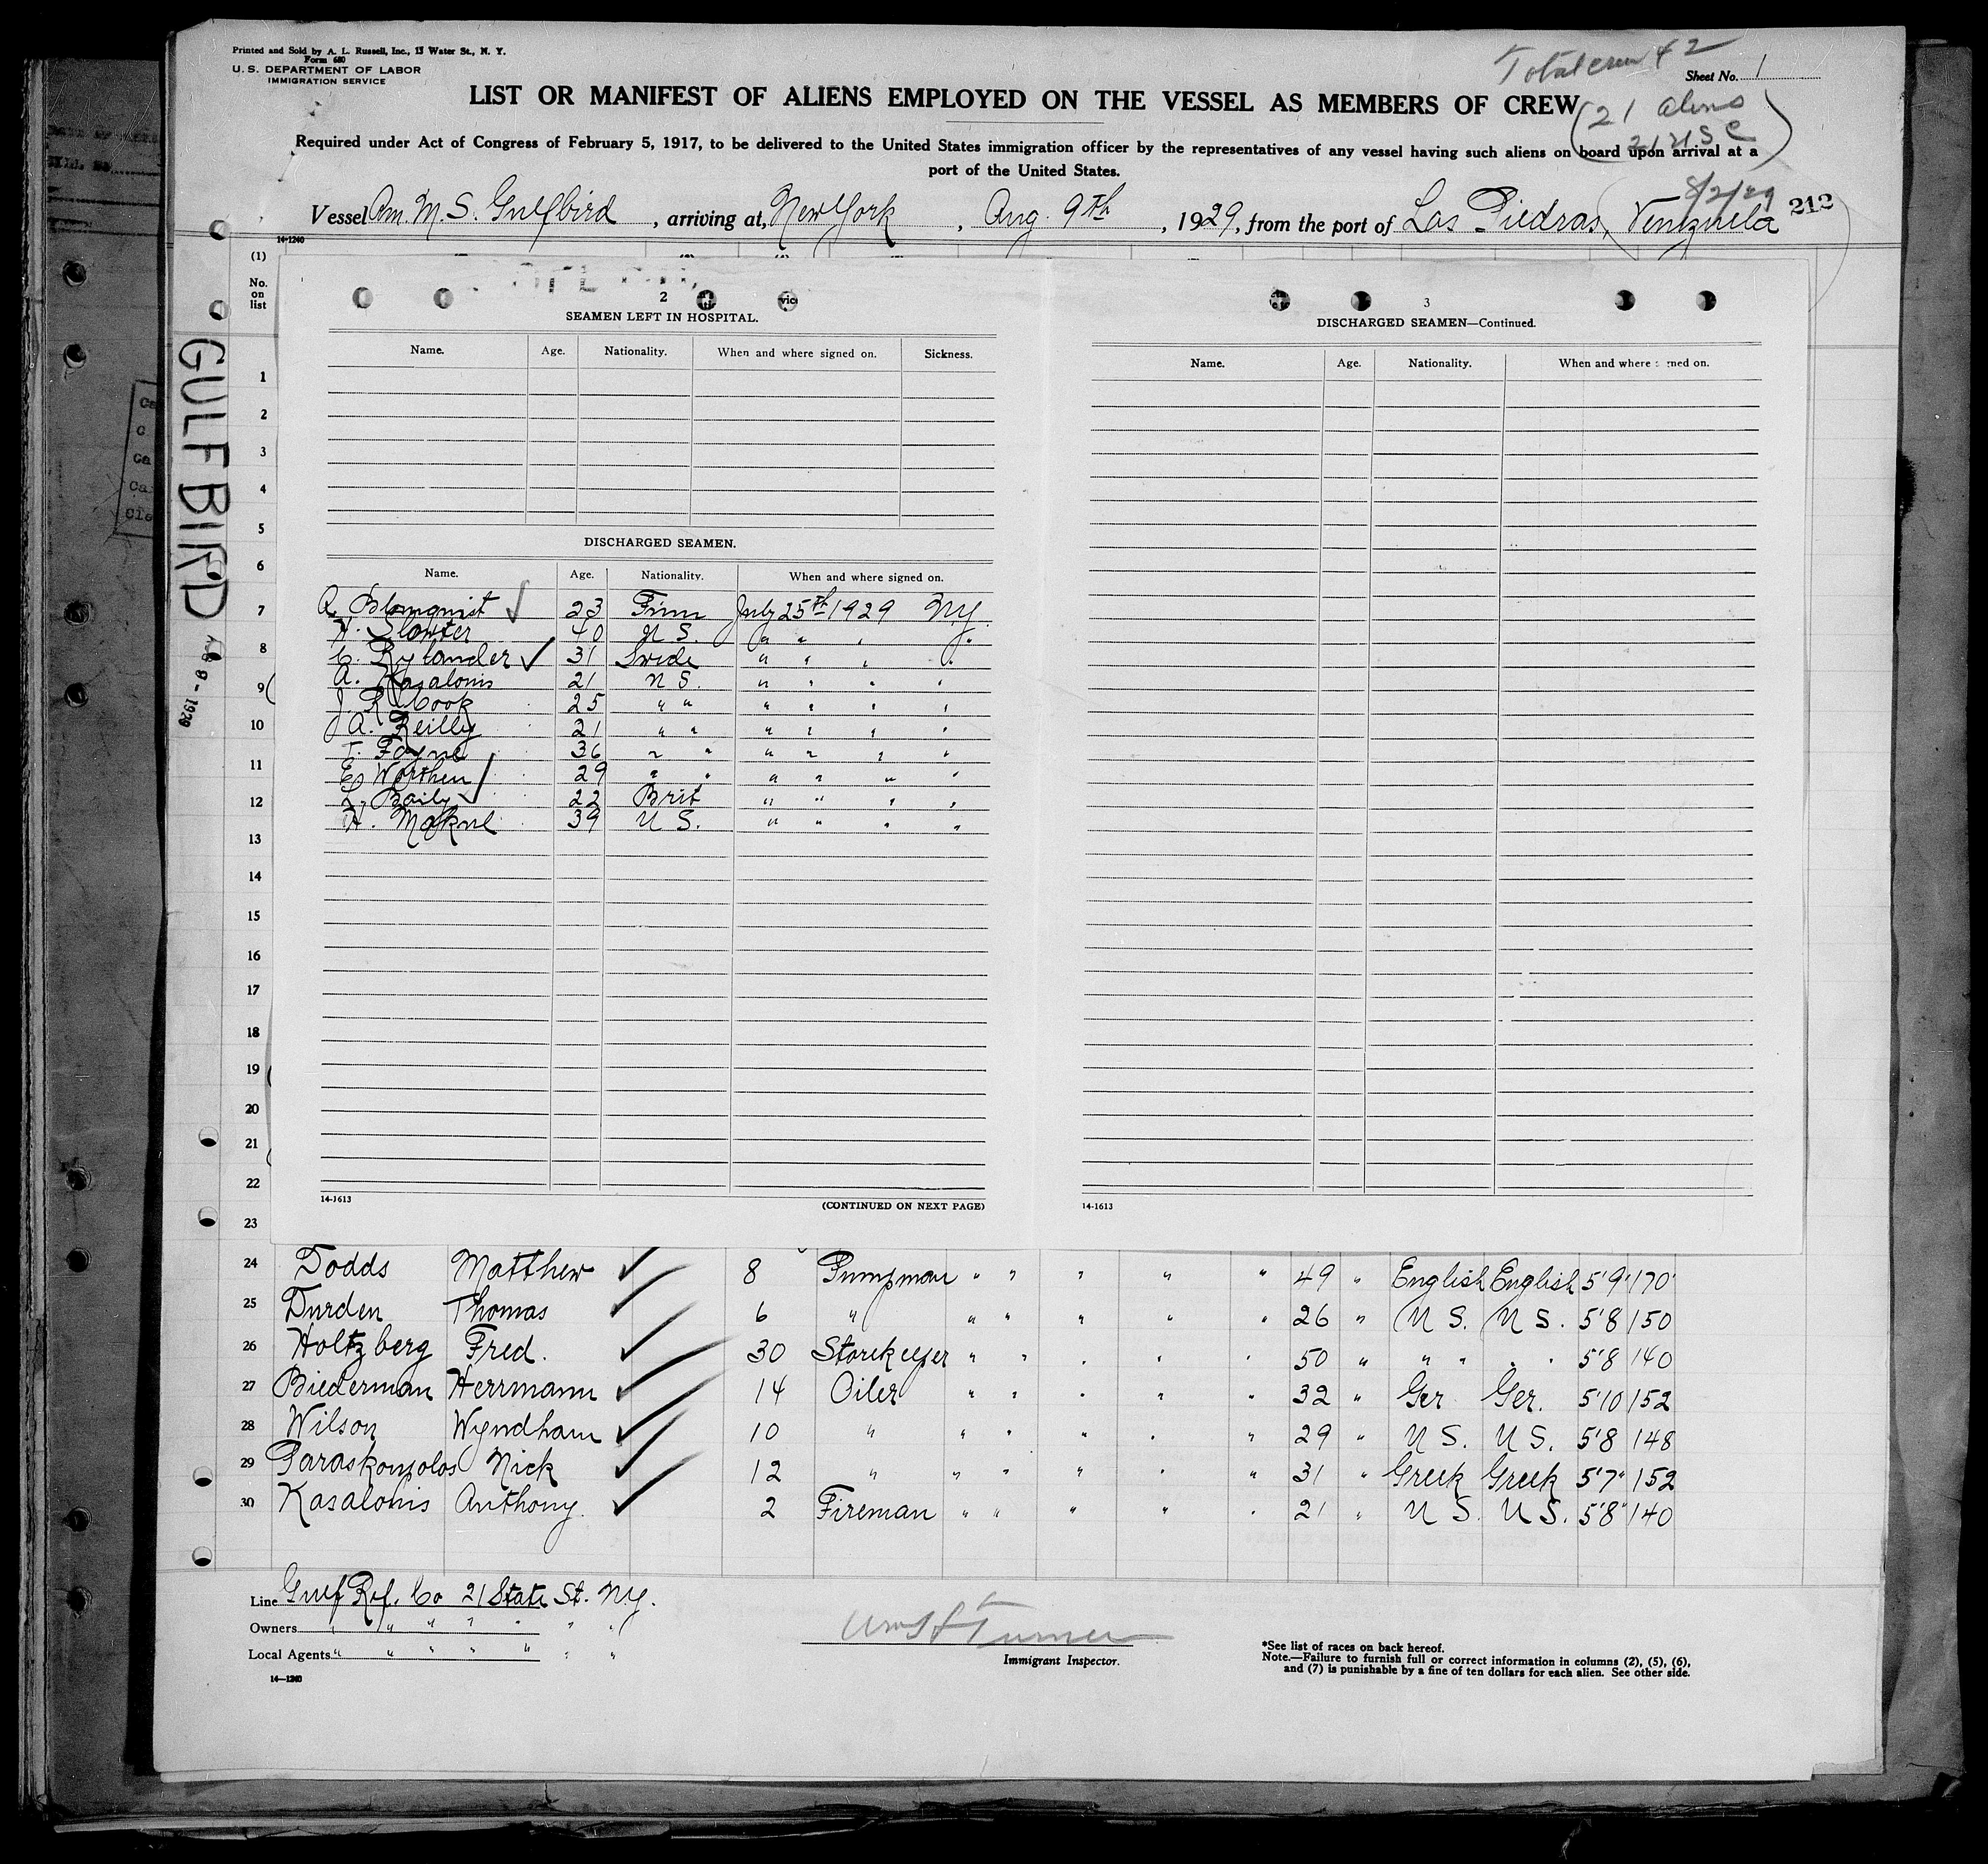 Printed and Sold by A. L. Russell, Inc., 13 Water St., N. Y.
Form 680
U. S. DEPARTMENT OF LABOR
IMMIGRATION SERVICE
Total crew 42
Sheet No. 1
LIST OR MANIFEST OF ALIENS EMPLOYED ON THE VESSEL AS MEMBERS OF CREW
(21 aliens
21 USC)
Required under Act of Congress of February 5, 1917, to be delivered to the United States immigration officer by the representatives of any vessel having such aliens on board upon arrival at a
port of the United States.
8/2/29
Vessel Am. M. S. Gulfbird, arriving at, New York, Aug. 9th, 1929, from the port of Las Piedras, Venezuela 212
14-1240
(1)
No. on list
GULFBIRD
2
SEAMEN LEFT IN HOSPITAL.
Name. Age. Nationality. When and where signed on. Sickness.
DISCHARGED SEAMEN.
Name. Age. Nationality. When and where signed on.
A. Blomquist 23 Finn July 25th 1929 N.Y.
H. Slowter 40 U S. " " " "
C. Rylander 31 Swede " " " "
A. Kasalonis 21 U S " " " "
J. R. Cook 25 " " " " " "
J A. Reilly 21 " " " " " "
T. Fayne 36 " " " " " "
E. Worthen 29 " " " " " "
L. Baily 22 Brit " " " "
H. 39 U S. " " " "
14-1613
(CONTINUED ON NEXT PAGE)
3
DISCHARGED SEAMEN—Continued.
Name. Age. Nationality. When and where signed on.
14-1613
1
2
3
4
5
6
7
8
9
10
11
12
13
14
15
16
17
18
19
20
21
22
23
24 Dodds Matthew 8 Pumpman " " " " " 49 " English English 5'9" 170
25 Durden Thomas 6 " " " " " " 26 " U S. U S. 5'8 150
26 Holtzberg Fred. 30 Storekeeper " " " " " 50 " " " " " 5'8 140
27 Biederman Herrmann 14 Oiler " " " " " 32 " Ger Ger. 5'10 152
28 Wilson Wyndham 10 " " " " " " 29 " U S. U S. 5'8 148
29 Paraskoupolos Nick 12 " " " " " " 31 " Greek Greek 5'7" 152
30 Kasalonis Anthony. 2 Fireman " " " " " 21 " U S. U S. 5'8" 140
Line Gulf Ref. Co 21 State St. N.Y.
Owners " " " " " " "
Local Agents " " " " " " "
14-1240
Immigrant Inspector.
*See list of races on back hereof.
Note.—Failure to furnish full or correct information in columns (2), (5), (6),
and (7) is punishable by a fine of ten dollars for each alien. See other side.